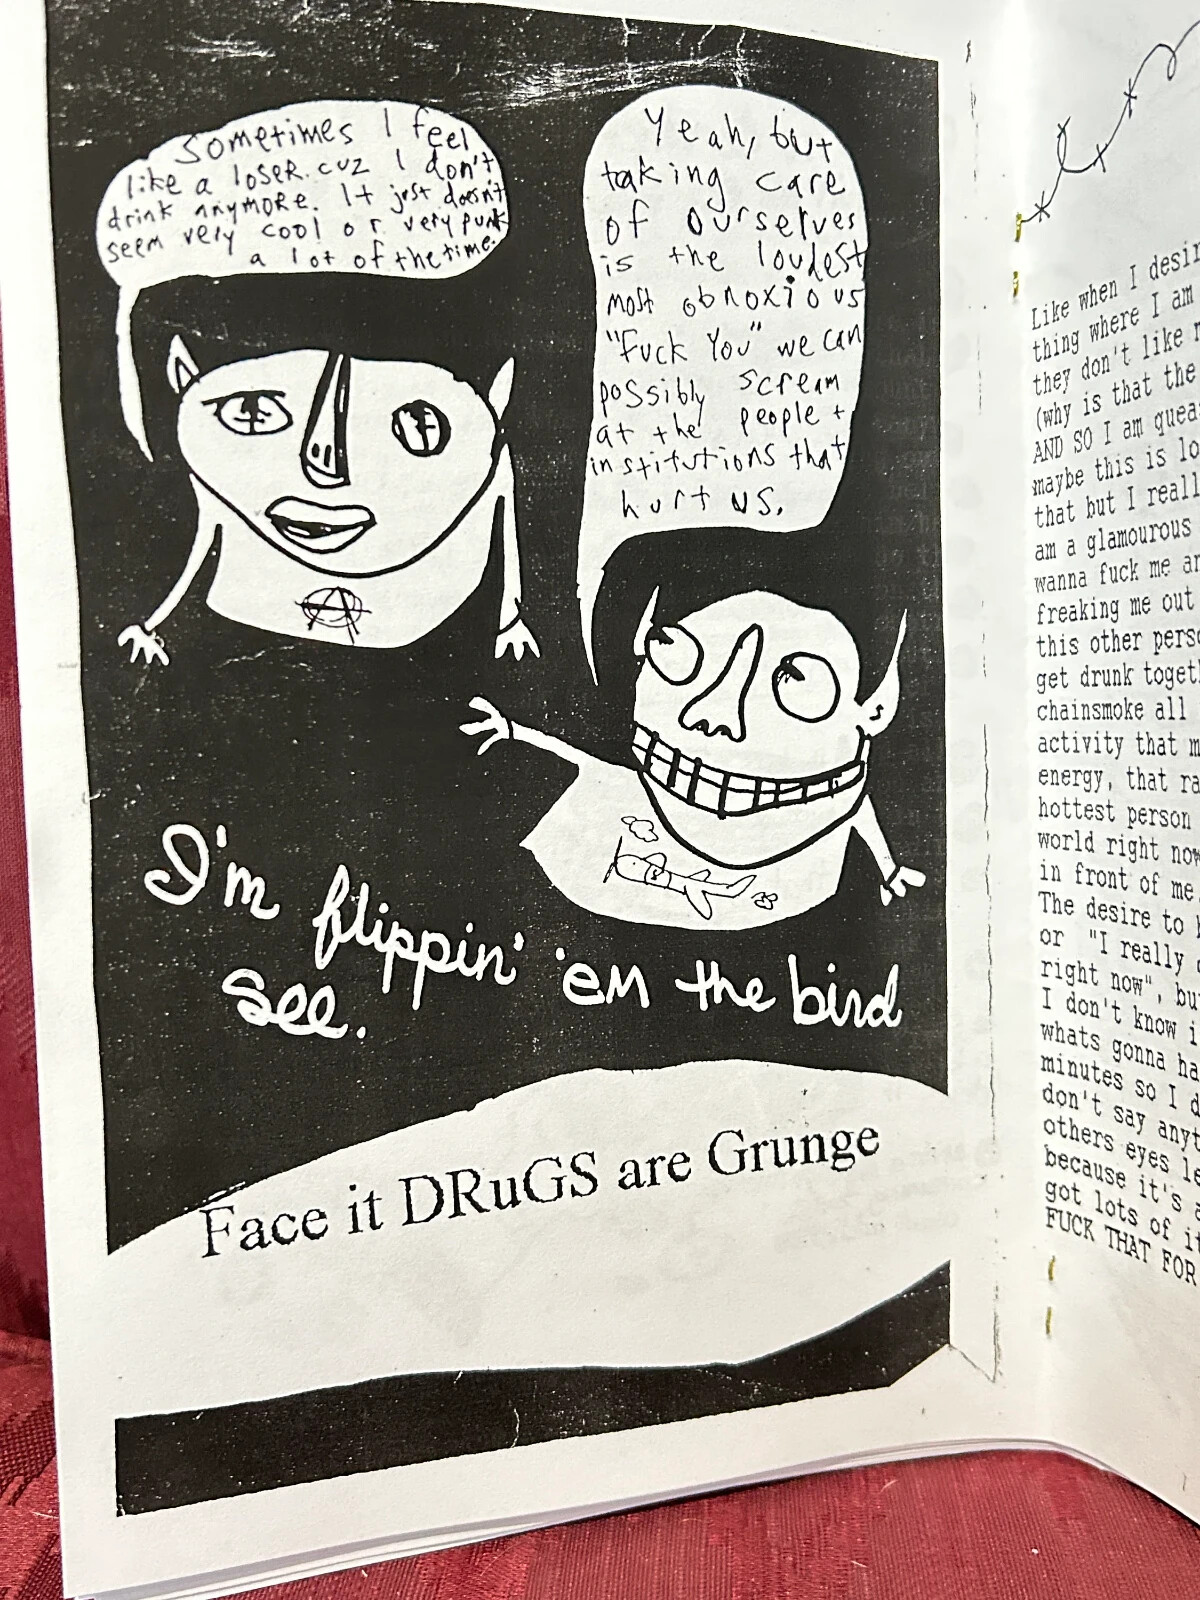 Sometimes I feel
like a loser. cuz I don't
drink anymore. It just doesn't
seem very cool or very punk
a lot of the time.
Yeah, but
taking care
of ourselves
is the loudest
most obnoxious
"Fuck You" we can
possibly scream
at the people +
institutions that
hurt us.
A
I'm flippin' 'em the bird
see.
Face it DRuGS are Grunge
Like when I
thing where I am
they don't like
(why is that the
AND SO I am
maybe this is
that but I
am a glamourous
wanna fuck me
freaking me out
this other
get drunk
chainsmoke all
activity that
energy, that
hottest person
world right
in front of me
The desire to
or "I really
right now", but
I don't know
whats gonna
minutes so I
don't say
others eyes
because it's
got lots of
FUCK THAT FOR